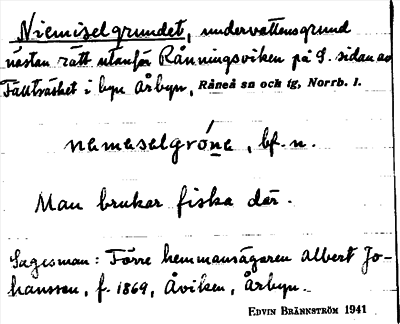 Niemiselgrundet, undervattensgrund
nästan rätt utanför Rånningsviken på S. sidan av
Fällträsket i byn Årbyn, Råneå sn och tg, Norrb. l.
nemeselgróne, bf. n.
Man brukar fiska där.
Sagesman: Förre hemmansägaren Albert Jo-
hansson, f. 1869, Åviken, Årbyn.
EDVIN BRÄNNSTRÖM 1941